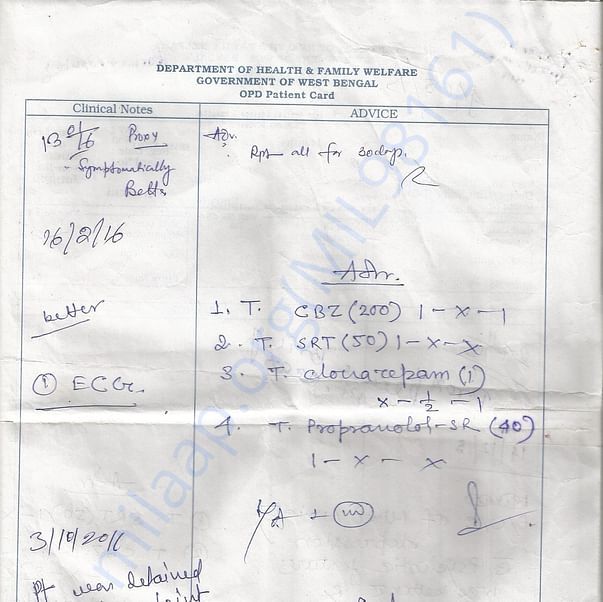 DEPARTMENT OF HEALTH & FAMILY WELFARE
GOVERNMENT OF WEST BENGAL
OPD Patient Card
Clinical Notes ADVICE
Proxy Adv.
- Symptomatically
Better
Rpt all for 30 days.
16/2/16
Adv.
better
1. T. CBZ (200) 1 - x - 1
2. T. SRT (50) 1 - x - x
3. T. clonazepam (1)
x - ½ - 1
① ECG
4. T. Propranolol-SR (40)
1 - x - x
3/10/2016
Pt was detained
milaap.org(MIL98161)